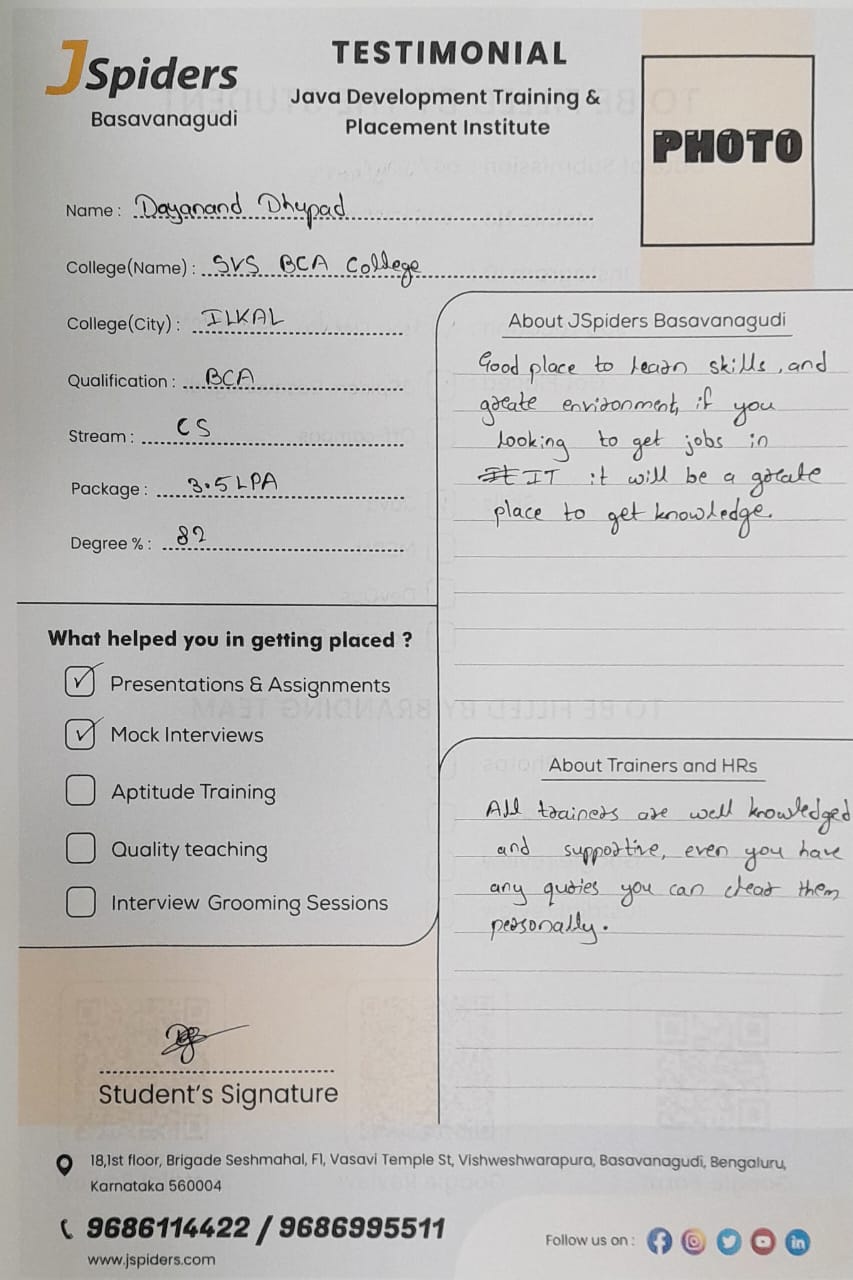 JSpiders
Basavanagudi
TESTIMONIAL
Java Development Training &
Placement Institute
PHOTO
Name : Dayanand Dhupad
College(Name) : SVS BCA College
College(City) : ILKAL
Qualification : BCA
Stream : CS
Package : 3.5 LPA
Degree % : 82
What helped you in getting placed ?
Presentations & Assignments
Mock Interviews
Aptitude Training
Quality teaching
Interview Grooming Sessions
Student's Signature
About JSpiders Basavanagudi
Good place to learn skills, and
greate environment, if you
looking to get jobs in
It IT it will be a greate
place to get knowledge.
About Trainers and HRs
All trainers are well knowledged
and supportive, even you have
any quries you can clear them
personally.
18,1st floor, Brigade Seshmahal, F1, Vasavi Temple St, Vishweshwarapura, Basavanagudi, Bengaluru,
Karnataka 560004
9686114422 / 9686995511
www.jspiders.com
Follow us on :